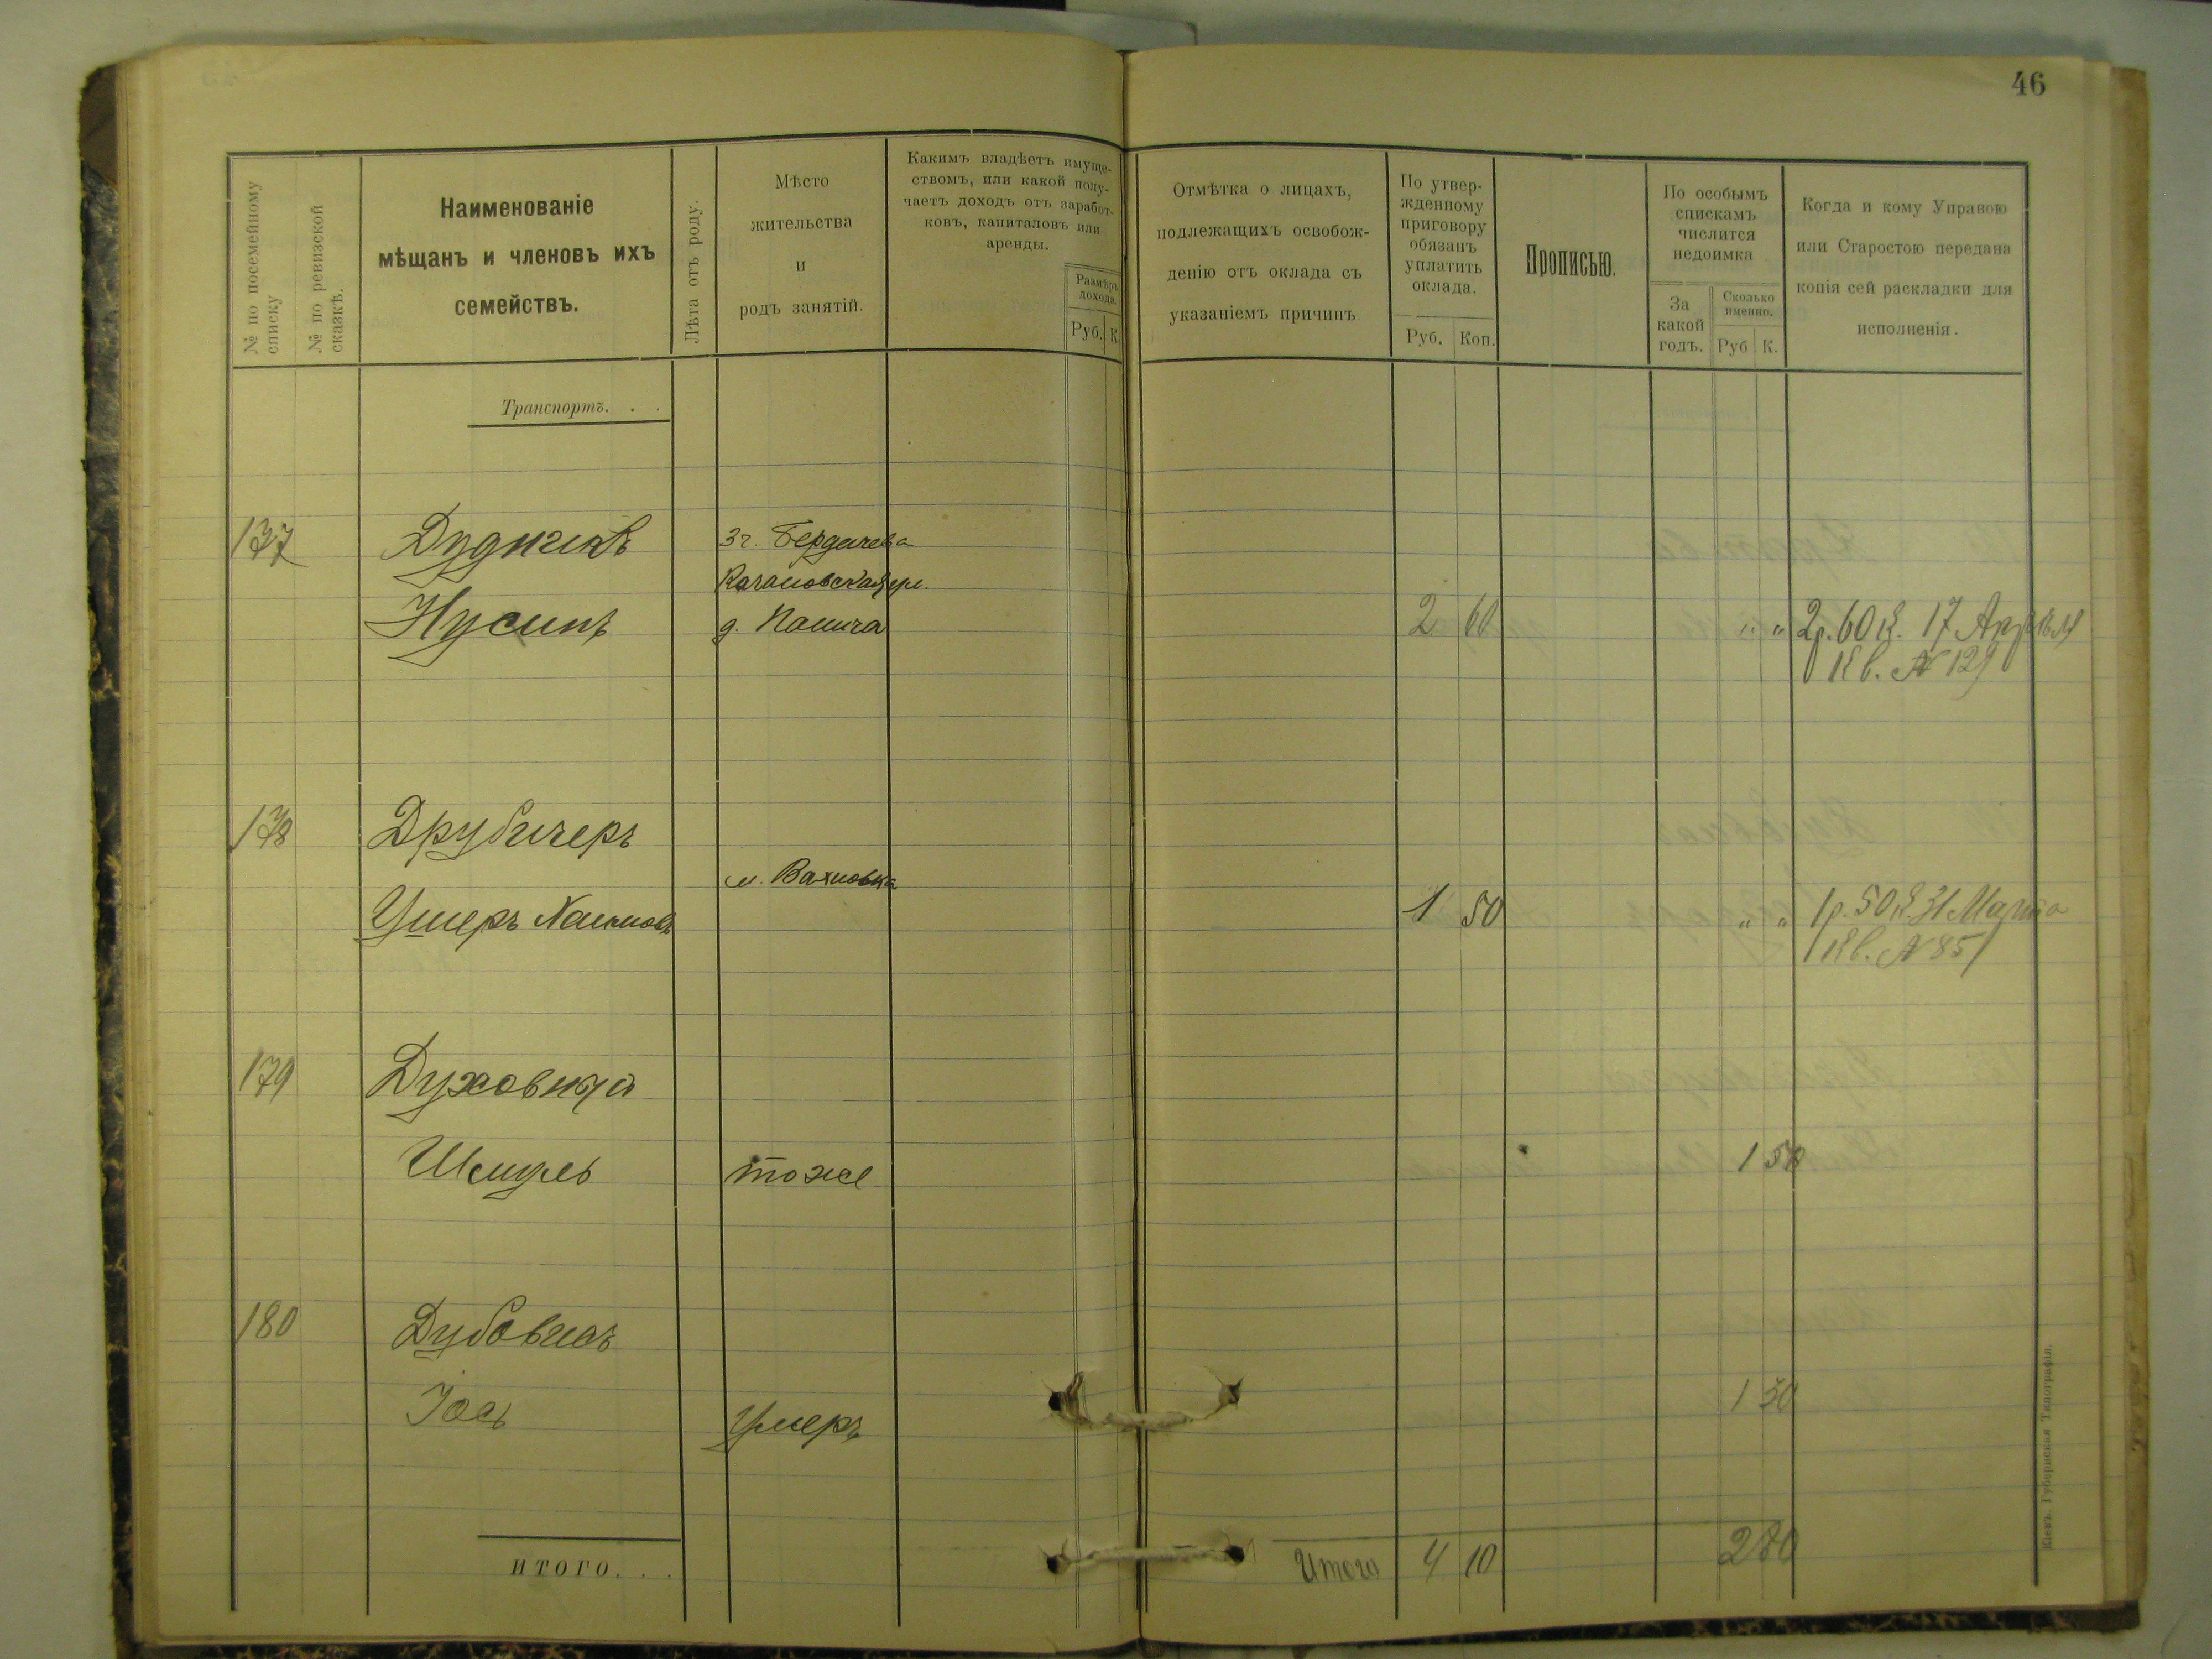 46
№ по посемейному списку
№ по ревизской сказкѣ.
Наименованіе
мѣщанъ и членовъ ихъ
семействъ.
Лѣта отъ роду.
Мѣсто
жительства
и
родъ занятій.
Какимъ владѣетъ имуще-
ствомъ, или какой полу-
чаетъ доходъ отъ заработ-
ковъ, капиталовъ или
аренды.
Размѣръ
дохода.
Руб. К.
Отмѣтка о лицахъ,
подлежащихъ освобож-
денію отъ оклада съ
указаніемъ причинъ
По утвер-
жденному
приговору
обязанъ
уплатить
оклада.
Руб. Коп.
Прописью.
По особымъ
спискамъ
числится
недоимка
За
какой
годъ.
Сколько
именно.
Руб К.
Когда и кому Управою
или Старостою передана
копія сей раскладки для
исполненія.
Транспортъ. . .
137 Дудникъ г. Бердичева
Качановская ул.
Нусинъ д. 2 60 " " 2р. 60 к. 17 Апрѣля
Кв. № 129
178 Друбичеръ
м. Вахновка
Ушеръ 1 50 " " 1р. 50 к. 31 Марта
Кв. № 85
179 Духовный
Шмуль тоже 1 50
180
Іось Умеръ 1 30
ИТОГО. . . Итого 4 10 2 80
Кіевъ. Губернская Типографія.